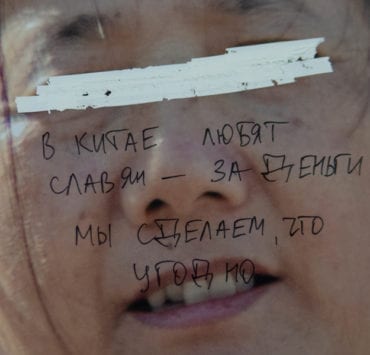 В КИТАЕ ЛЮБЯТ
СЛАВЯН — ЗА ДЕНЬГИ
МЫ СДЕЛАЕМ, ЧТО
УГОДНО